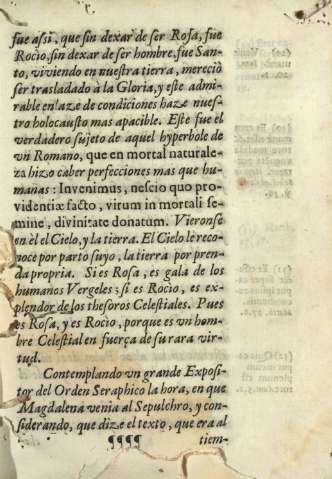 fue assi, que sin dexar de ser Rosa, fue
Rocio, sin dexar de ser hombre, fue San-
to, viviendo en nuestra tierra, mereciò
ser trasladado à la Gloria, y este admi-
rable enlaze de condiciones haze nues-
tro holocausto mas apacible. Este fue el
verdadero sujeto de aquel hyperbole de
vn Romano, que en mortal naturale-
za hizo caber perfecciones mas que hu-
manas: Invenimus, nescio quo pro
videntiæ facto, virum in mortali se-
mine, divinitate donatum. Vieronse
en èl el Cielo, y la tierra. El Cielo le reco-
noce por parto suyo, la tierra por pren-
da propria. Si es Rosa, es gala de los
humanos Vergeles; si es Rocio, es ex-
plendor de los thesoros Celestiales. Pues
es Rosa, y es Rocio, porque es vn hom-
bre Celestial en fuerça de su rara vir-
tud.
Contemplando vn grande Exposi-
tor del Orden Seraphico la hora, en que
Magdalena venia al Sepulchro, y con-
siderando, que dize el texto, que era al
¶¶¶¶ tiem-